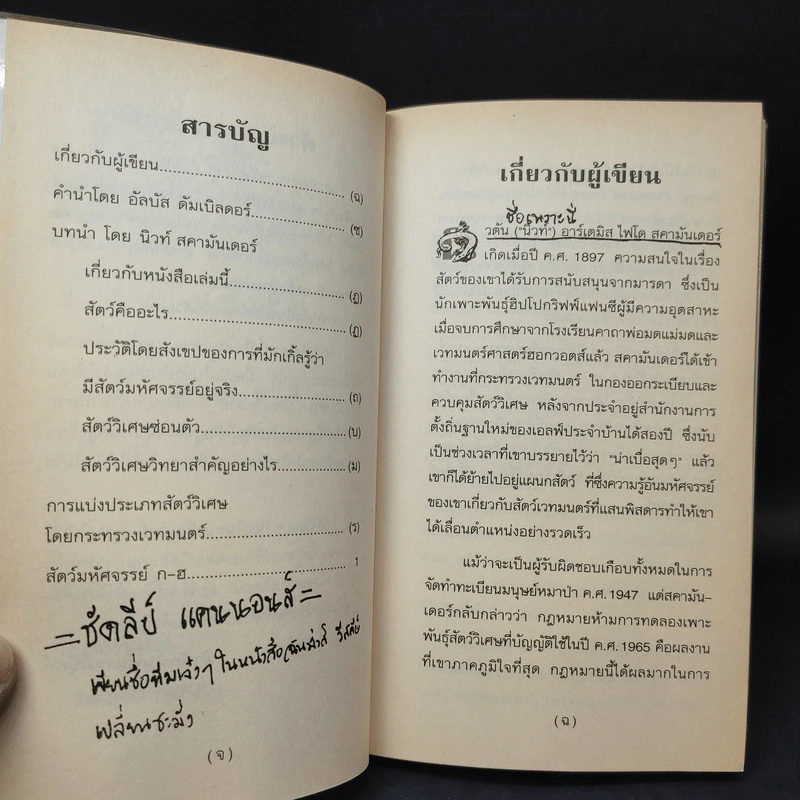 สารบัญ
เกี่ยวกับผู้เขียน..............................(ฉ)
คำนำโดย อัลบัส ดัมเบิลดอร์..............................(ซ)
บทนำ โดย นิวท์ สคามันเดอร์
เกี่ยวกับหนังสือเล่มนี้..............................(ฎ)
สัตว์คืออะไร..............................(ฏ)
ประวัติโดยสังเขปของการที่มักเกิ้ลรู้ว่า
มีสัตว์มหัศจรรย์อยู่จริง..............................(ถ)
สัตว์วิเศษซ่อนตัว..............................(บ)
สัตว์วิเศษวิทยาสำคัญอย่างไร..............................(ม)
การแบ่งประเภทสัตว์วิเศษ
โดยกระทรวงเวทมนตร์..............................(ร)
สัตว์มหัศจรรย์ ก-ฮ..............................1
=ชัดลีย์ แคนนอนส์=
เขียนชื่อทีมเจ๋งๆ ในหนังสือ วีสลีย์
เปลี่ยนซะมั่ง
(จ)
เกี่ยวกับผู้เขียน
ชื่อเพราะนี่
นิวตัน ("นิวท์") อาร์เตมิส ไฟโด สคามันเดอร์
เกิดเมื่อปี ค.ศ. 1897 ความสนใจในเรื่อง
สัตว์ของเขาได้รับการสนับสนุนจากมารดา ซึ่งเป็น
นักเพาะพันธุ์ฮิปโปกริฟฟ์แฟนซีผู้มีความอุตสาหะ
เมื่อจบการศึกษาจากโรงเรียนคาถาพ่อมดแม่มดและ
เวทมนตร์ศาสตร์ฮอกวอตส์แล้ว สคามันเดอร์ได้เข้า
ทำงานที่กระทรวงเวทมนตร์ ในกองออกระเบียบและ
ควบคุมสัตว์วิเศษ หลังจากประจำอยู่สำนักงานการ
ตั้งถิ่นฐานใหม่ของเอลฟ์ประจำบ้านได้สองปี ซึ่งนับ
เป็นช่วงเวลาที่เขาบรรยายไว้ว่า "น่าเบื่อสุดๆ" แล้ว
เขาก็ได้ย้ายไปอยู่แผนกสัตว์ ที่ซึ่งความรู้อันมหัศจรรย์
ของเขาเกี่ยวกับสัตว์เวทมนตร์ที่แสนพิสดารทำให้เขา
ได้เลื่อนตำแหน่งอย่างรวดเร็ว
แม้ว่าจะเป็นผู้รับผิดชอบเกือบทั้งหมดในการ
จัดทำทะเบียนมนุษย์หมาป่า ค.ศ.1947 แต่สคามัน-
เดอร์กลับกล่าวว่า กฎหมายห้ามการทดลองเพาะ
พันธุ์สัตว์วิเศษที่บัญญัติใช้ในปี ค.ศ. 1965 คือผลงาน
ที่เขาภาคภูมิใจที่สุด กฎหมายนี้ได้ผลมากในการ
(ฉ)